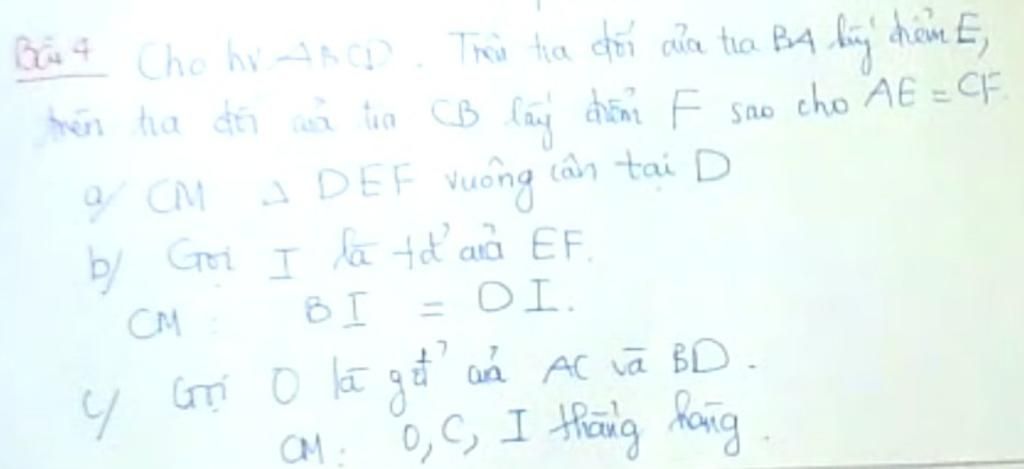 Bài 4 Cho hv ABCD. Trên tia đối của tia BA lấy điểm E,
trên tia đối của tia CB lấy điểm F sao cho AE = CF.
a/ CM Δ DEF vuông cân tại D
b/ Gọi I là tđ' của EF.
CM: BI = DI.
c/ Gọi O là gđ' của AC và BD.
CM: O, C, I thẳng hàng.